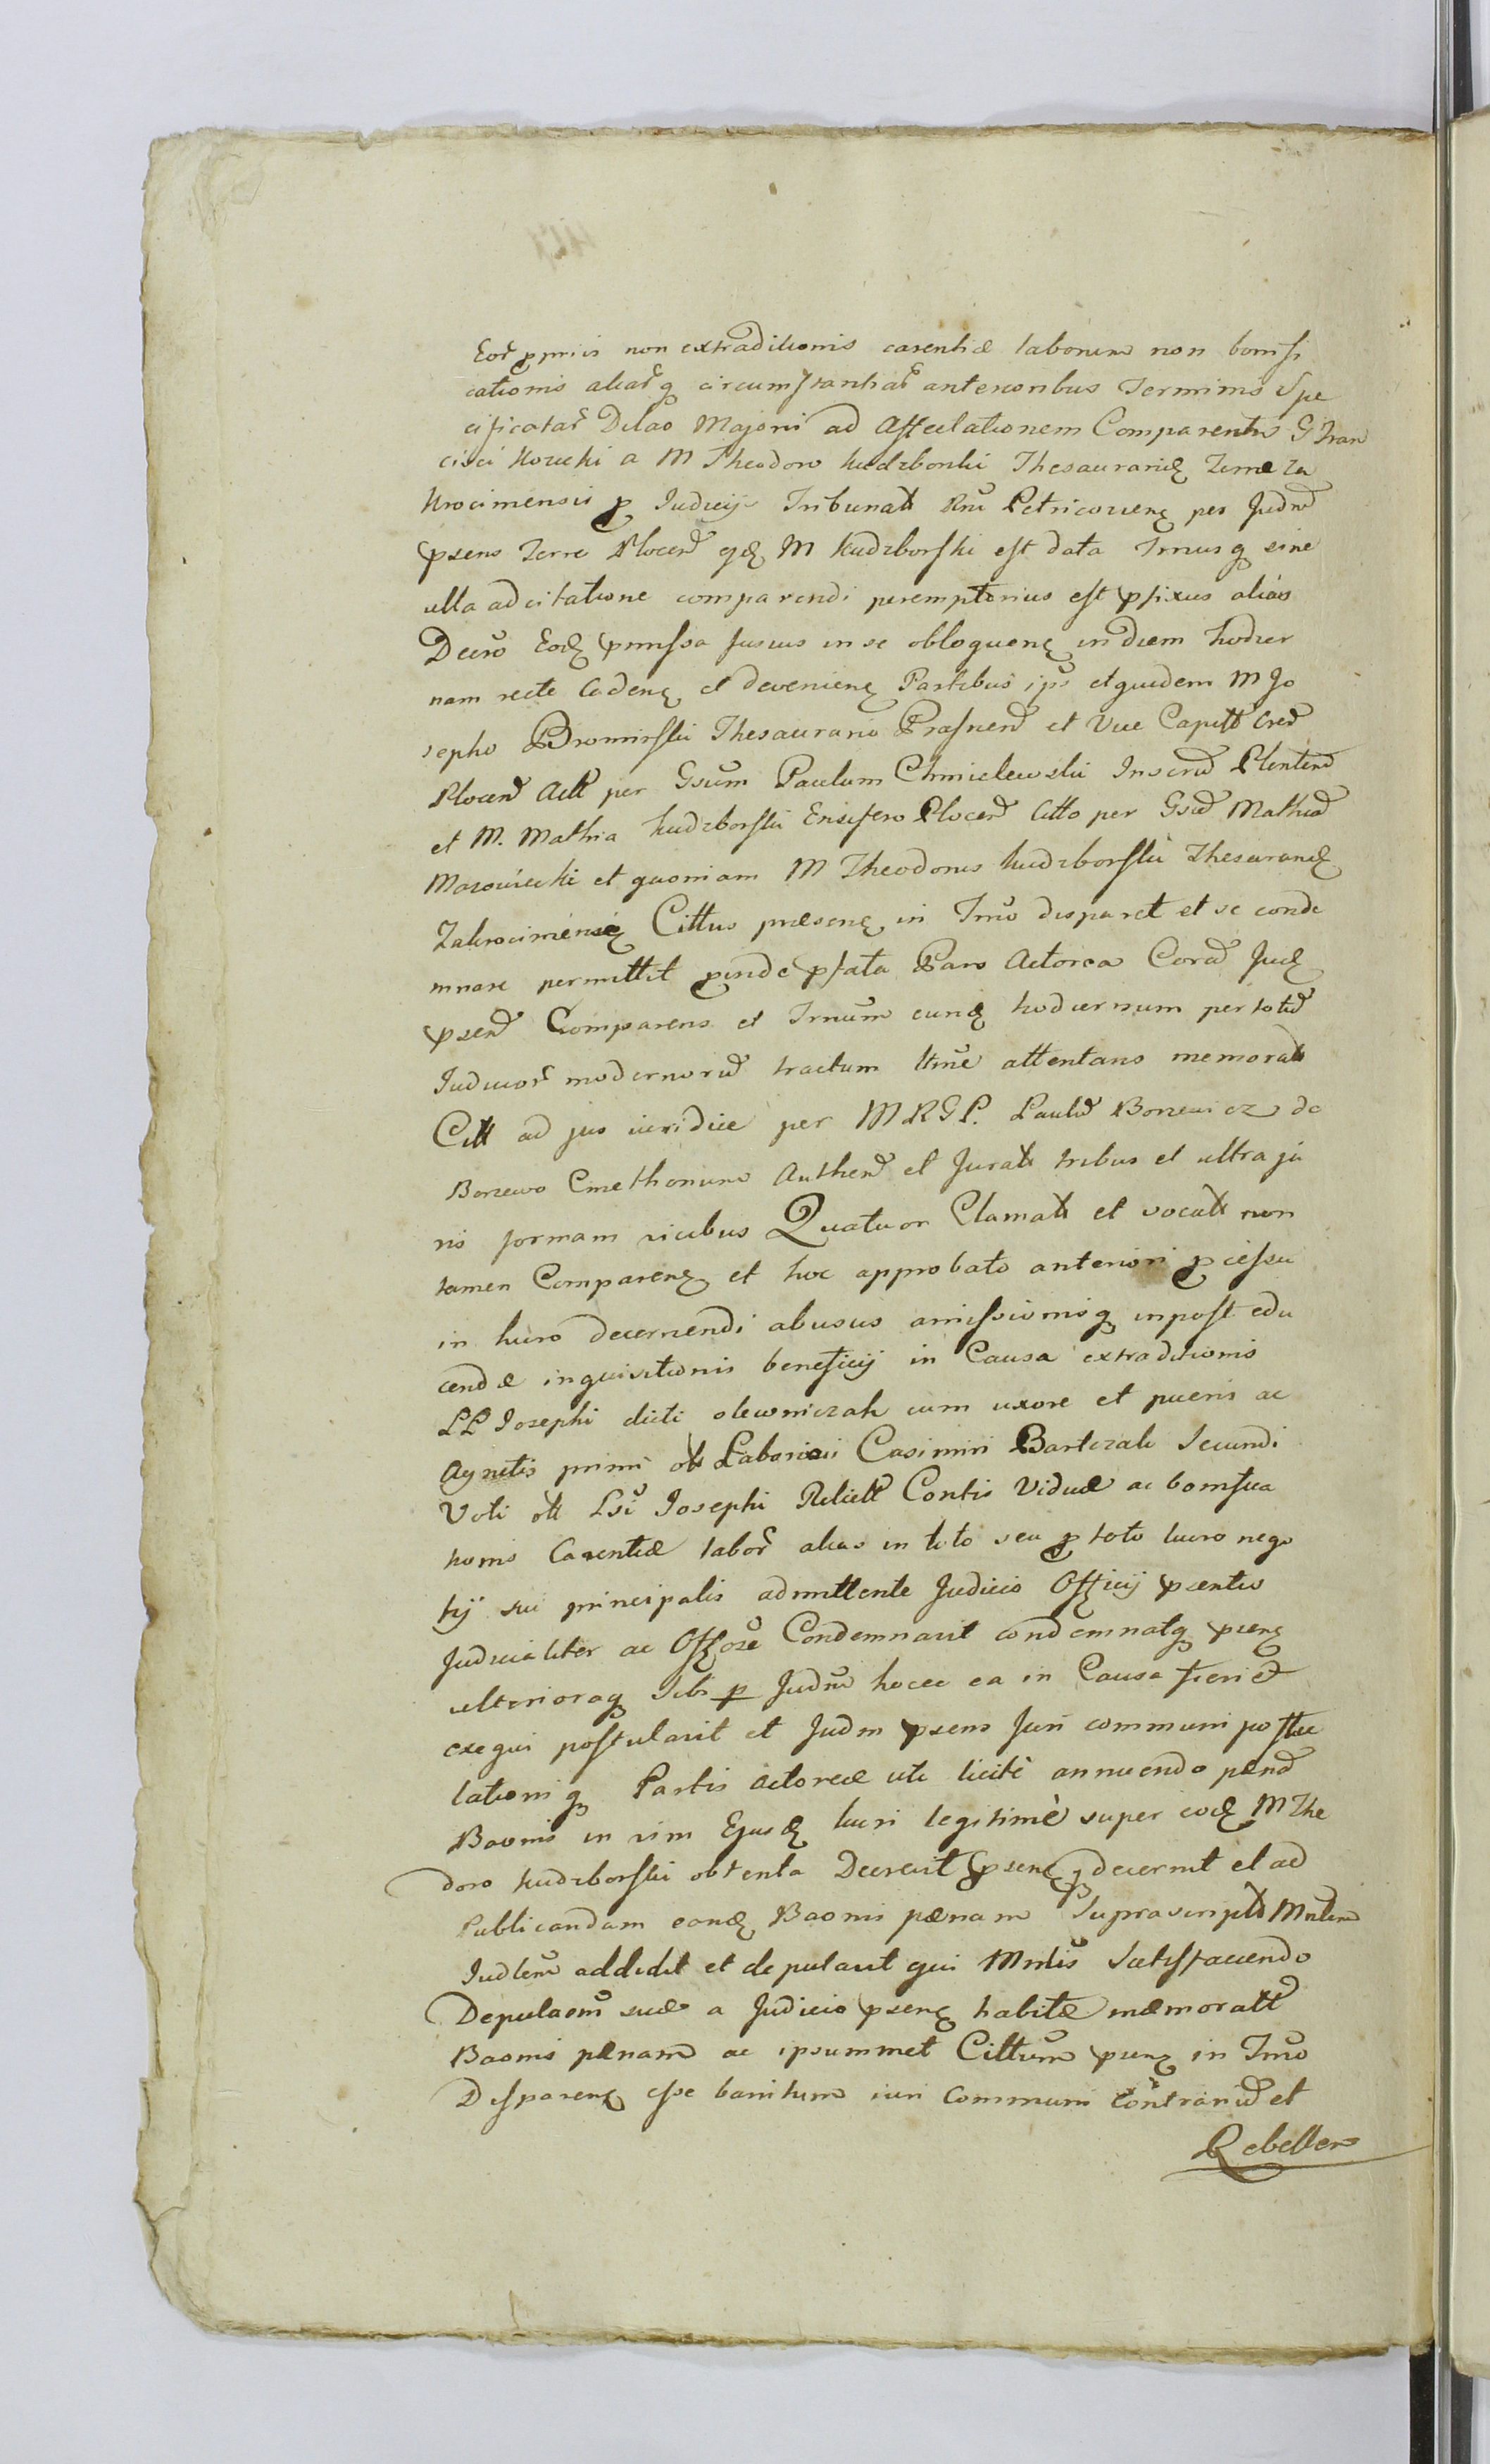 Eor praemis non extraditionis carentiae laborum non bonifi
cationis aliarq circumstantiar anterioribus Terminis Spe
cificatar Dilao Majori ad Affectationem Comparentis G Fran
cisci Nowicki a M Theodoro Kudzborski Thesaurarid Terrae Za
krocimensis p Judicij Tribunali Rni Petricovien per Judm
psens Terre Plocen ejd M Kudzborski est data Trnusq sine
ulla adcitatione comparendi peremptorius est pfixus alias
Decro Eod pmissa fusius in se obloquen in diem hodier
nam recte Caden et devenien Partibus ips et quidem M Jo
sepho Bromirski Thesaurario Prasnen et Vice Capitt Cren
Plocen Actt per Gsum Paulum Chmielewski Inscrum Plenten
et M. Mathia Kudzborski Ensifero Plocen Citto per Gsum Mathiam
Mazowiecki et quoniam M Theodorus Kudzborski Thesaurarid
Zakrocimensis Cittus praesens in Trno disparet et se conde
mnare permittit pinde pfata Pars Actorea Coram Jud
psen Comparens et Trnum eund hodiernum per totum
Judicior modernorum tractum ltme attentans memoratt
Citt ad jus juridice per M R G P. Paulum Bonewicz de
Bonewo Cmethonum Authen et Juratt tribus et ultra ju
ris formam vicibus Quatuor Clamatt et vocatt non
tamen Comparen et hoc approbato anteriori pcessu
in lucro decernendi abusus amissionisq inpost edu
cendae inquisitionis beneficij in Causa extraditionis
LL Josephi dicti olewniczak cum uxore et pueris ac
Agnetis primi ott Laboriosi Casimiri Bartczak Secundi
Voti ott Lsi Josephi Relictt Contis Viduae ac bonifica
tionis Carentiae labor alias in toto seu p toto lucro nego
tij sui principalis admittente Judicio Officij psentis
Judicialiter ac Offose Condemnavit condemnatq psen
ulterioraq Sibi p Judm hocce ea in Causa fieri et
exequi postulavit et Judm psens Juri communi postu
lationiq Partis actoreae uti licitè annuendo paenam
Baonis in vim Ejusd lucri legitimè super eod M The
doro Kudzborski obtenta Decrevit psenq decernit et ad
Publicandam eand Baonis paenam Suprascriptt Mntlem
Judlem addidit et deputavit qui Mntlis Satisfaciendo
Deputaoni suae a Judicio psen habitae maemoratt
Baonis paenam ac ipsummet Cittum psen in Trno
Disparen esse banitum iuri Communi Contrarium et
Rebellem